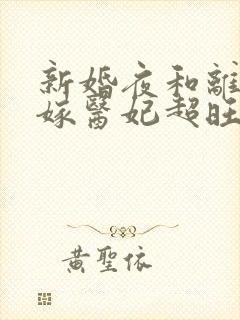 新婚夜和離
嫁醫妃超旺
黃聖依